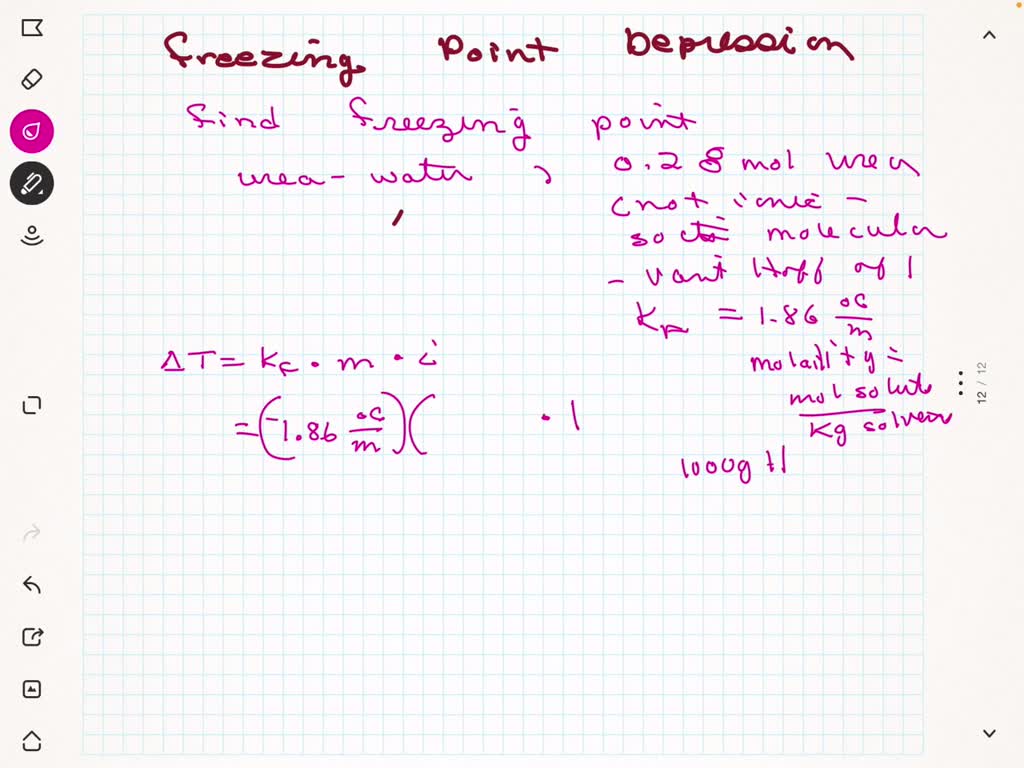 Freezing Point Depression
find freezing point
urea - water ,
0.28 mol urea
(not ionic -
molecular
- vant Hoff of 1
Kf = 1.86 °C/m
ΔT = Kf · m · i
molality =
mol solute
Kg solven
= (-1.86 °C/m)( · 1
1000g H
12 / 12